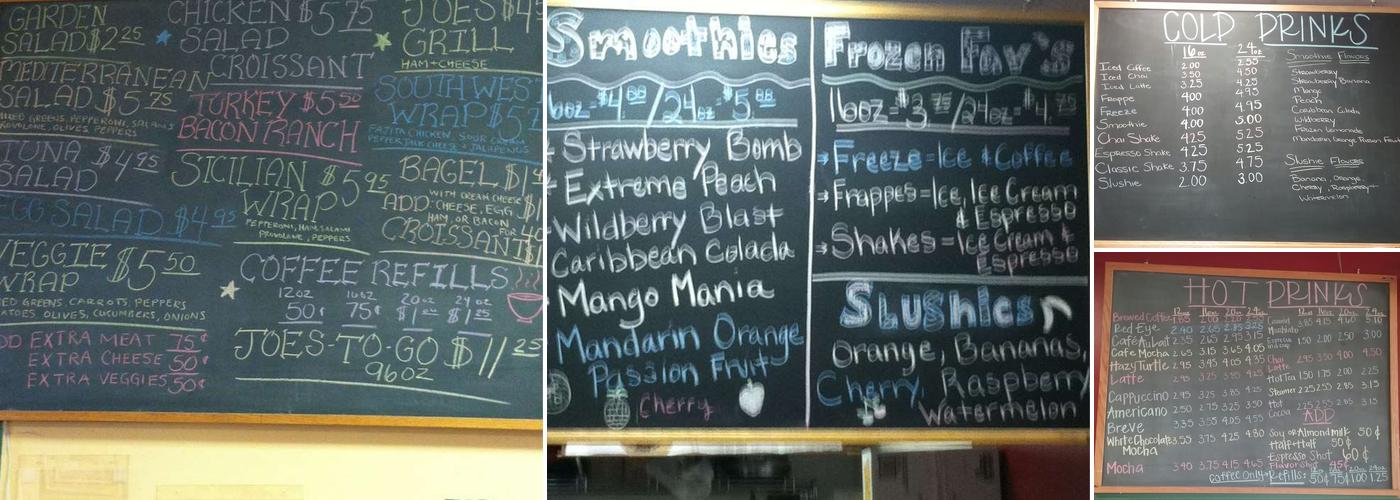 GARDEN
SALAD $2 25
MEDITERRANEAN
SALAD $5 75
GREENS, PEPPERONI, SALAMI
PROVOLONE, OLIVES, PEPPERS
TUNA $4 95
SALAD
EGG SALAD $4 95
VEGGIE $5 50
WRAP
GREENS, CARROTS, PEPPERS
OLIVES, CUCUMBERS, ONIONS
EXTRA MEAT 75¢
EXTRA CHEESE 50¢
EXTRA VEGGIES 50¢
CHICKEN $5 75
SALAD
CROISSANT
TURKEY $5 50
BACON RANCH
SICILIAN $5 95
WRAP
PEPPERONI, HAM, SALAMI
PROVOLONE, PEPPERS
JOE'S $4
GRILL
HAM + CHEESE
SOUTHWEST
WRAP $5
FAJITA CHICKEN, SOUR CREAM
PEPPER JACK CHEESE & JALAPENOS
BAGEL $1
WITH CREAM CHEESE
ADD CHEESE, EGG
HAM, OR BACON
FOR
CROISSANT $
COFFEE REFILLS
12oz 16oz 20oz 24oz
50¢ 75¢ $1 $1 25
JOES-TO-GO $11 25
96oz
Smoothies
16oz=$4 /24oz=$5
Strawberry Bomb
Extreme Peach
Wildberry Blast
Caribbean Colada
Mango Mania
Mandarin Orange
Passion Fruit
Cherry
Frozen Fav's
16oz=$3 75/24oz=$4 75
Freeze=Ice & Coffee
Frappes=Ice, Ice Cream
& Espresso
Shakes=Ice Cream &
Espresso
Slushies
Orange, Bananas,
Cherry, Raspberry
Watermelon
COLD DRINKS
16oz 24oz
Iced Coffee 2.00 2.55
Iced Chai 3.50 4.50
Iced Latte 3.25 4.25
Frappe 4.00 4.95
Freeze 4.00 4.95
Smoothie 4.00 5.00
Chai Shake 4.25 5.25
Espresso Shake 4.25 5.25
Classic Shake 3.75 4.75
Slushie 2.00 3.00
Smoothie Flavors
Strawberry
Strawberry Banana
Mango
Peach
Caribbean Colada
Wildberry
Frozen Lemonade
Mandarin Orange Passion
Slushie Flavors
Banana, Orange,
Cherry, Raspberry +
Watermelon
HOT DRINKS
Brewed Coffee
Red Eye 2.40 2.65 2.85 3.25
Café Au Lait 2.35 2.65 2.95 3.15
Cafe Mocha 2.65 3.15 3.65 4.05
Hazy Turtle 2.95 3.45 4.05 4.35
Latte 2.95 3.25
Cappuccino 2.95 3.25 3.85 4.25
Americano 2.50 2.75 3.25 3.50
Breve 3.35 3.55 4.05 4.55
White Chocolate 3.55 3.75 4.25 4.80
Mocha
Mocha 3.40 3.75 4.15 4.65
Caramel 3.85 4.15 4.60 5.10
Macchiato
Espresso 1.50 2.00 2.50 3.00
Chai 2.95 3.50 4.00 4.50
Latte
Hot Tea 1.50 1.75 2.00 2.25
Steamer 2.25 2.55 2.85 3.15
Hot 2.25 2.55 2.85 3.15
Cocoa
ADD
Soy or Almond milk 50¢
Half+Half 50¢
Espresso Shot 60¢
Flavor Shot 45¢
Coffee Only Refills: 50¢ 75¢ 1.00 1.25